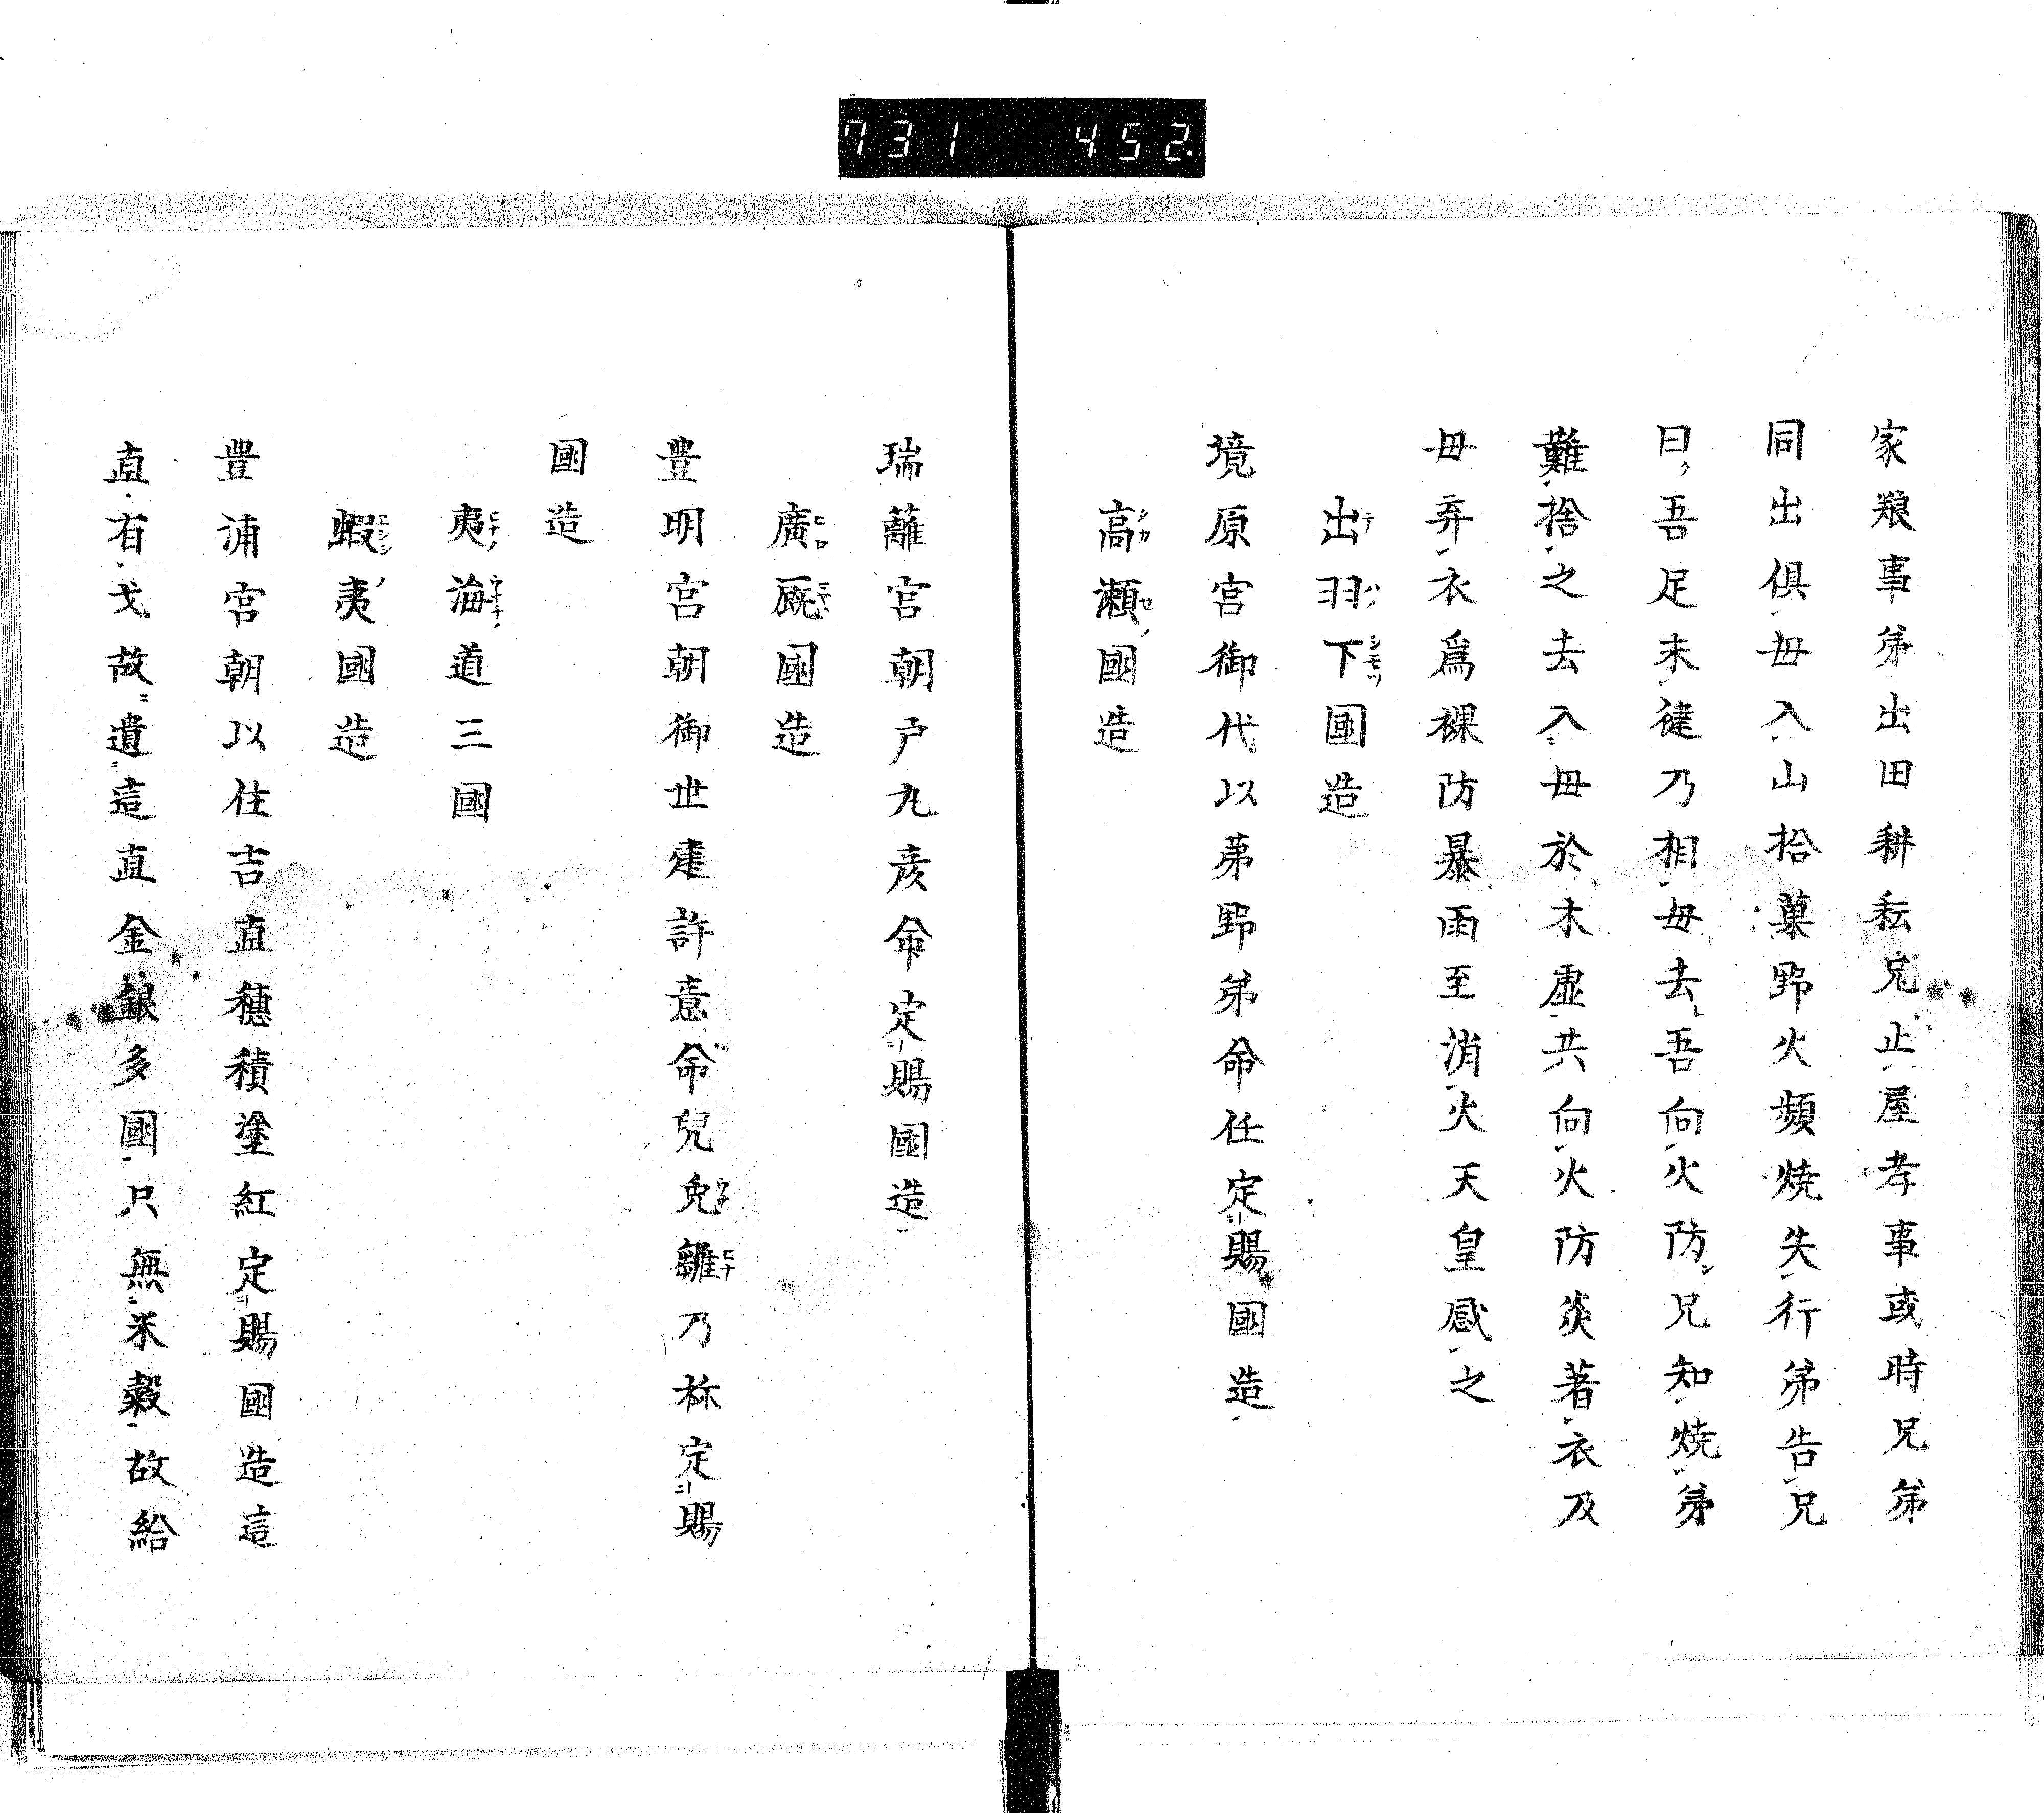 731 452
家粮事弟出田耕耘兄止屋孝事或時兄弟
同出倶毋入山拾菓野火頻燒失行弟告兄
曰吾足未健乃相毋去吾向火防兄知燒弟
難捨之去入毋於木虚共向火防炎著衣及
毋弃衣爲裸防暴雨至消火天皇感之
出羽下國造
境原宮御代以苐野弟命任定賜國造
高瀬國造
瑞籬宮朝户九彦命定賜國造
廣厩國造
豊明宮朝御世建許意命兒兎雛乃称定賜
國造
夷海道三國
蝦夷國造
豊浦宮朝以住吉直穗積塗紅定賜國造這
直有戈故遺這直金銀多國只無米穀故給